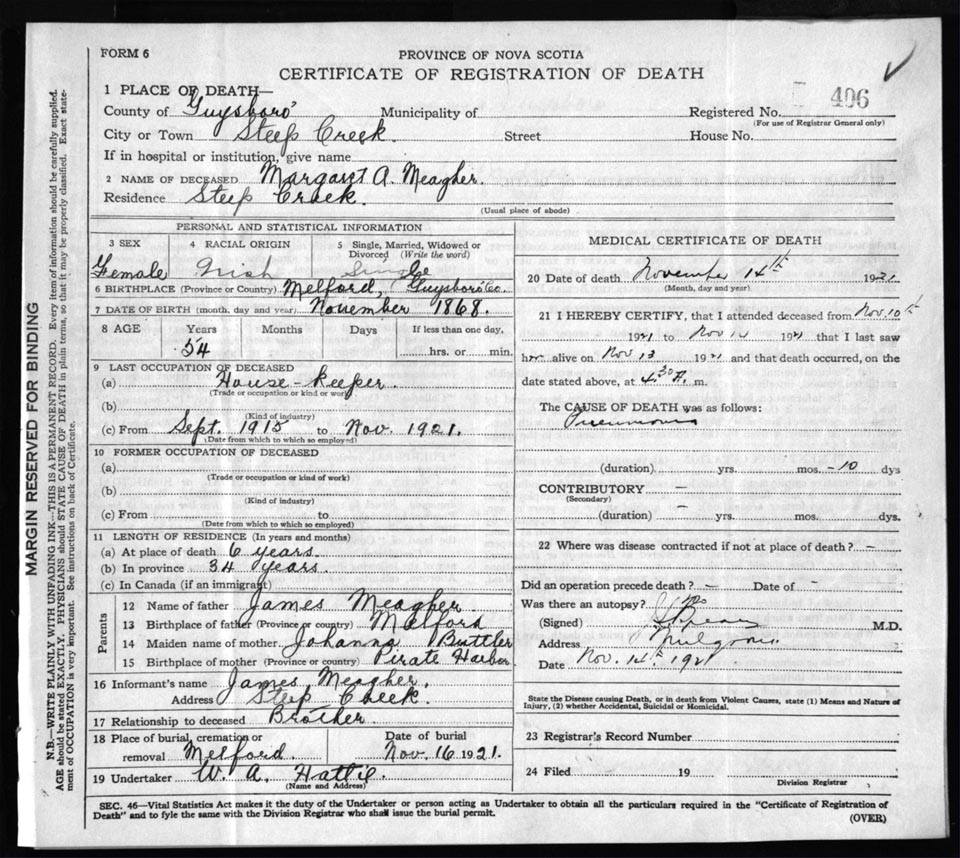 FORM 6
PROVINCE OF NOVA SCOTIA
CERTIFICATE OF REGISTRATION OF DEATH
1 PLACE OF DEATH—
County of Guysboro' Municipality of Registered No. 406
(For use of Registrar General only)
City or Town Steep Creek. Street House No.
If in hospital or institution, give name
2 NAME OF DECEASED Margaret A. Meagher.
Residence Steep Creek.
(Usual place of abode)
PERSONAL AND STATISTICAL INFORMATION
3 SEX 4 RACIAL ORIGIN 5 Single, Married, Widowed or Divorced (Write the word)
Female Irish Single
6 BIRTHPLACE (Province or Country) Melford, Guysboro Co.
7 DATE OF BIRTH (month, day and year) November 1868.
8 AGE Years Months Days If less than one day,
54 hrs. or min.
9 LAST OCCUPATION OF DECEASED
(a) House-keeper.
(Trade or occupation or kind or work)
(b)
(Kind of industry)
(c) From Sept. 1915 to Nov. 1921.
(Date from which to which so employed)
10 FORMER OCCUPATION OF DECEASED
(a)
(Trade or occupation or kind of work)
(b)
(Kind of industry)
(c) From to
(Date from which to which so employed)
11 LENGTH OF RESIDENCE (In years and months)
(a) At place of death 6 years.
(b) In province 34 years.
(c) In Canada (if an immigrant)
Parents
12 Name of father James Meagher
13 Birthplace of father (Province or country) Melford
14 Maiden name of mother Johanna Buttler
15 Birthplace of mother (Province or country) Pirate Harbor
16 Informant's name James Meagher.
Address Steep Creek.
17 Relationship to deceased Brother
18 Place of burial, cremation or removal Melford Date of burial Nov. 16 1921.
19 Undertaker W. A. Hattie.
(Name and Address)
MEDICAL CERTIFICATE OF DEATH
20 Date of death November 14th 1921
(Month, day and year)
21 I HEREBY CERTIFY, that I attended deceased from Nov. 10th
1921 to Nov 14 1921 that I last saw
her alive on Nov 13 1921 and that death occurred, on the
date stated above, at 4.30 A. m.
The CAUSE OF DEATH was as follows:
Pneumonia
(duration) yrs. mos. -10 dys
CONTRIBUTORY —
(Secondary)
(duration) – yrs. mos. dys.
22 Where was disease contracted if not at place of death? –
Did an operation precede death? – Date of –
Was there an autopsy? No
(Signed) M.D.
Address Mulgrave
Date Nov. 14th 1921
State the Disease causing Death, or in death from Violent Causes, state (1) Means and Nature of
Injury, (2) whether Accidental, Suicidal or Homicidal.
23 Registrar's Record Number
24 Filed 19
Division Registrar
SEC. 46—Vital Statistics Act makes it the duty of the Undertaker or person acting as Undertaker to obtain all the particulars required in the "Certificate of Registration of
Death" and to fyle the same with the Division Registrar who shall issue the burial permit.
(OVER)
MARGIN RESERVED FOR BINDING
N.B.—WRITE PLAINLY WITH UNFADING INK—THIS IS A PERMANENT RECORD. Every item of information should be carefully supplied.
AGE should be stated EXACTLY. PHYSICIANS should STATE CAUSE OF DEATH in plain terms, so that it may be properly classified. Exact state-
ment of OCCUPATION is very important. See instructions on back of Certificate.